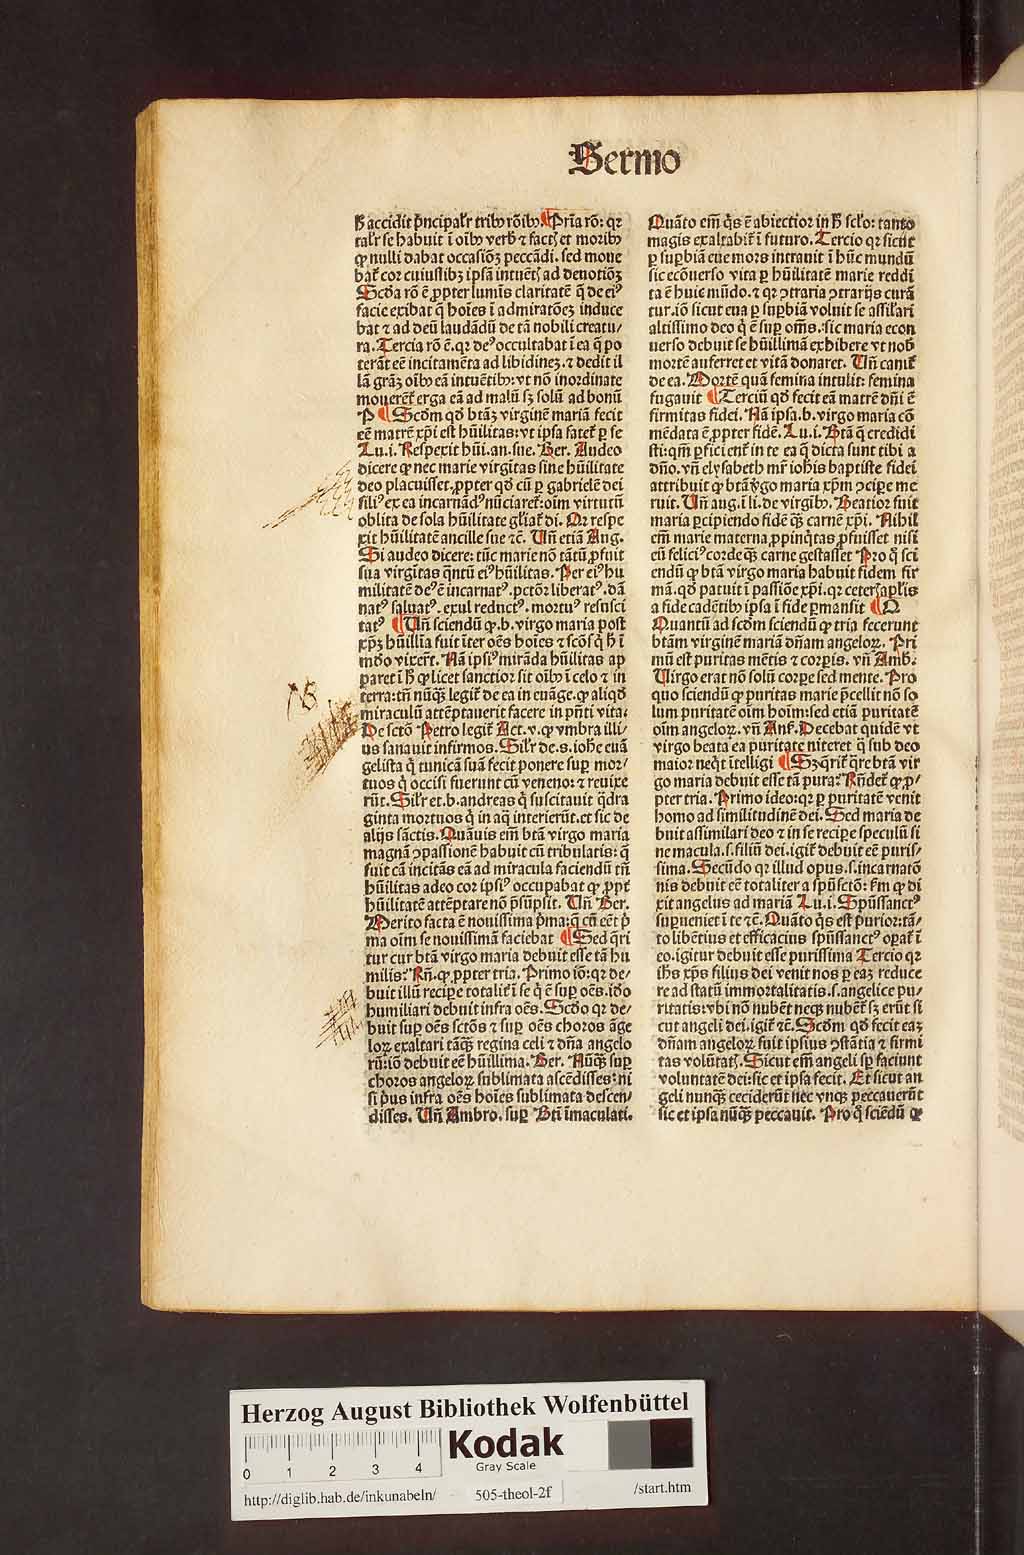 Sermo
ħ accidit p̄ncipalr̄ tribꝫ rōibꝫ. ¶ Pria rō: qꝛ
talr̄ se habuit ī oībꝫ verb̄ ⁊ factꝭ et moribꝫ
ꝙ nulli dabat occasiōꝫ peccādi. sed moue
bat̄ cor cuiustibꝫ ipsā intuētꝭ ad deuotiōꝫ
Scd̄a rō ē ꝓpter lumīs claritatē q̄ de eiꝰ
facie exibat q̄ hoīes ī admiratōeꝫ induce
bat ⁊ ad deū laudādū de tā nobili creatu/
ra. Tercia rō ē. qꝛ deꝰ occultabat ī ea q̄ po
terāt eē incitamēta ad libidineꝫ. ⁊ dedit il
lā grāꝫ oībꝫ eā intuētibꝫ: vt nō inordinate
mouerēt̄ erga eā ad malū sꝫ solū ad bonū
P ¶ Scd̄m qd̄ btāꝫ virginē mariā fecit
eē matrē xp̄i est hūilitas: vt ipsa fatet̄ ꝑ se
Lu. i. Respexit hūi. an. sue. Ber. Audeo
dicere ꝙ nec marie virgītas sine hūilitate
deo placuisset. ꝓpter qd̄ cū ꝑ gabrielē dei
filiꝰ ex ea incarnādꝰ nūciaret̄: oīm virtutū
oblita de sola hūilitate gl̄iat̄ di. Qꝛ respe
xit hūilitatē ancille sue ⁊c̄. Vn̄ etiā Aug.
Si audeo dicere: tūc marie nō tātū ꝓfuit
sua virgītas q̄ntū eiꝰ hūilitas. Per eiꝰ hu
militatē deꝰ ē incarnatꝰ. pctōr liberatꝰ. dā
natꝰ saluatꝰ. exul reductꝰ. mortuꝰ resusci
tatꝰ ¶ Vn̄ sciendū ꝙ. b. virgo maria post
xp̄ꝫ hūillīa fuit īter oēs hoīes ⁊ scōs q̄ ħ ī
mōdo vixerūt. Nā ipsiꝰ mirāda hūilitas ap
paret ī ħ ꝙ licet sanctior sit oībꝫ ī celo ⁊ in
terra: tn̄ nūꝙ̄ legit̄ de ea in euāge. ꝙ aliqd̄
miraculū attēptauerit facere in pn̄ti vita.
De sctō Petro legit̄ Act. v. ꝙ vmbra illi/
us sanauit infirmos. Sil̄r de. s. ioh̄e euā
gelista q̄ tunicā suā fecit ponere suꝑ mor/
tuos q̄ occisi fuerunt cū veneno: ⁊ reuixe
rūt. Sil̄r et. b. andreas q̄ suscitauit q̄dra
ginta mortuos q̄ in aq̄ interierūt. et sic de
alijs sāctis. Quāuis em̄ btā virgo maria
magnā ꝯpassionē habuit cū tribulatis: q̄
fuit cā incitās eā ad miracula faciendū tn̄
hūilitas adeo cor ipsiꝰ occupabat ꝙ ꝓpt̄
hūilitatē attēptare nō p̄sūpsit. Vn̄ Ber.
Merito facta ē nouissima p̄ma: q̄ cū eēt p̄
ma oīm se nouissimā faciebat ¶ Sed q̄ri
tur cur btā virgo maria debuit esse tā hu
milis? Rn̄. ꝙ ꝓpter tria. Primo iō: qꝛ de/
buit illū recipe totalit̄ ī se q̄ ē suꝑ oēs. iō
humiliari debuit infra oēs. Scd̄o qꝛ de/
buit suꝑ oēs sctōs ⁊ suꝑ oēs choros āge
loꝝ exaltari tāꝙ̄ regina celi ⁊ dn̄a angelo
rū: iō debuit eē hūillima. Ber. Nūꝙ̄ suꝑ
choros angeloꝝ sublimata ascēdisses: ni
si p̄us infra oēs hoīes sublimata descen/
disses. Vn̄ Ambro. suꝑ Bti īmaculati.
Quāto em̄ q̄s ē abiectior in ħ sclo: tanto
magis exaltabit̄ ī futuro. Tercio qꝛ sicut
ꝑ suꝑbiā eue mors intrauit ī hūc mundū
sic ecōuerso vita ꝑ hūilitatē marie reddi
ta ē huic mūdo. ⁊ qꝛ ꝯtraria ꝯtrarijs curā
tur. iō sicut eua ꝑ suꝑbiā voluit se assil̄ari
altissimo deo q̄ ē suꝑ om̄s: sic maria econ
uerso debuit se hūillimā exhibere vt nob̄
mortē auferret et vitā donaret. Vn̄ canit̄
de ea. Mortē quā femina intulit: femina
fugauit ¶ Terciū qd̄ fecit eā matrē dn̄i ē
firmitas fidei. Nā ipsa. b. virgo maria cō
mēdata ē ꝓpter fidē. Lu. i. Btā q̄ credidi
sti: qm̄ ꝑficient̄ in te ea q̄ dicta sunt tibi a
dn̄o. vn̄ elysabeth mr̄ ioh̄is baptiste fidei
attribuit ꝙ btā v̄go maria xp̄m ꝯcipe me
ruit. Vn̄ aug. ī li. de virgībꝫ. Beatior fuit
maria ꝑcipiendo fidē ꝙ̄ carnē xp̄i. Nihil
em̄ maria materna ꝓpinq̄tas ꝓfuisset nisi
eū feliciꝰ corde ꝙ̄ carne gestasset Pro q̄ sci
endū ꝙ btā virgo maria habuit fidem fir
mā. qd̄ patuit ī passiōe xp̄i. qꝛ ceterꝭ apl̄is
a fide cadētibꝫ ipsa ī fide ꝑmansit ¶ Q
Quantū ad scd̄m sciendū ꝙ tria fecerunt
btām virginē mariā dn̄am angeloꝝ. Pri
mū est puritas mētis ⁊ corꝑis. vn̄ Amb.
Uirgo erat nō solū corꝑe sed mente. Pro
quo sciendū ꝙ puritas marie p̄cellit nō so
lum puritatē oīm hoīm: sed etiā puritatē
oīm angeloꝝ. vn̄ Ans. Decebat quidē vt
virgo beata ea puritate niteret q̄ sub deo
maior neq̄t ītelligi ¶ Sꝫ q̄rit̄ q̄re btā vir
go maria debuit esse tā pura? Rn̄det̄ ꝙ ꝓ/
pter tria. Primo ideo: qꝛ ꝑ puritatē venit
homo ad similitudinē dei. Sed maria de
buit assimilari deo ⁊ in se recipe speculū si
ne macula. s. filiū dei. igit̄ debuit eē puris/
sima. Secūdo qꝛ illud opus. s. incarnatō
nis debuit eē totaliter a spū sctō: fm̄ ꝙ di
xit angelus ad mariā Lu. i. Spūssanctꝰ
suꝑueniet ī te ⁊c̄. Quāto q̄s est purior: tā/
to libētius et efficacius spūssanctꝰ opat̄ ī
eo. igitur debuit esse purissima Tercio qꝛ
ih̄s xp̄s filius dei venit nos ꝑ eaꝫ reduce
re ad statū immortalitatis. s. angelice pu/
ritatis: vbi nō nubēt neqꝫ nubēt̄ sꝫ erūt si
cut angeli dei. igit̄ ⁊c̄. Scd̄m qd̄ fecit eaꝫ
dn̄am angeloꝝ fuit ipsius ꝯstātia ⁊ firmi
tas volūtatꝭ. Sicut em̄ angeli sꝑ faciunt
voluntatē dei: sic et ipsa fecit. Et sicut an
geli nunꝙ̄ ceciderūt nec vnꝙ̄ peccauerūt
sic et ipsa nūꝙ̄ peccauit. Pro q̄ sciēdū ꝙ
Herzog August Bibliothek Wolfenbüttel
Kodak
Gray Scale
0 1 2 3 4
http://diglib.hab.de/inkunabeln/ 505-theol-2f /start.htm